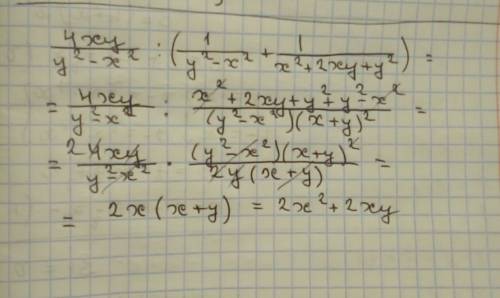 4xy/(y²-x²) : (1/(y²-x²) + 1/(x²+2xy+y²)) =
= 4xy/(y²-x²) : (x²+2xy+y²+y²-x²)/((y²-x²)(x+y)²) =
= 2 4xy/(y²-x²) · (y²-x²)(x+y)²/(2y(x+y)) =
= 2x(x+y) = 2x²+2xy